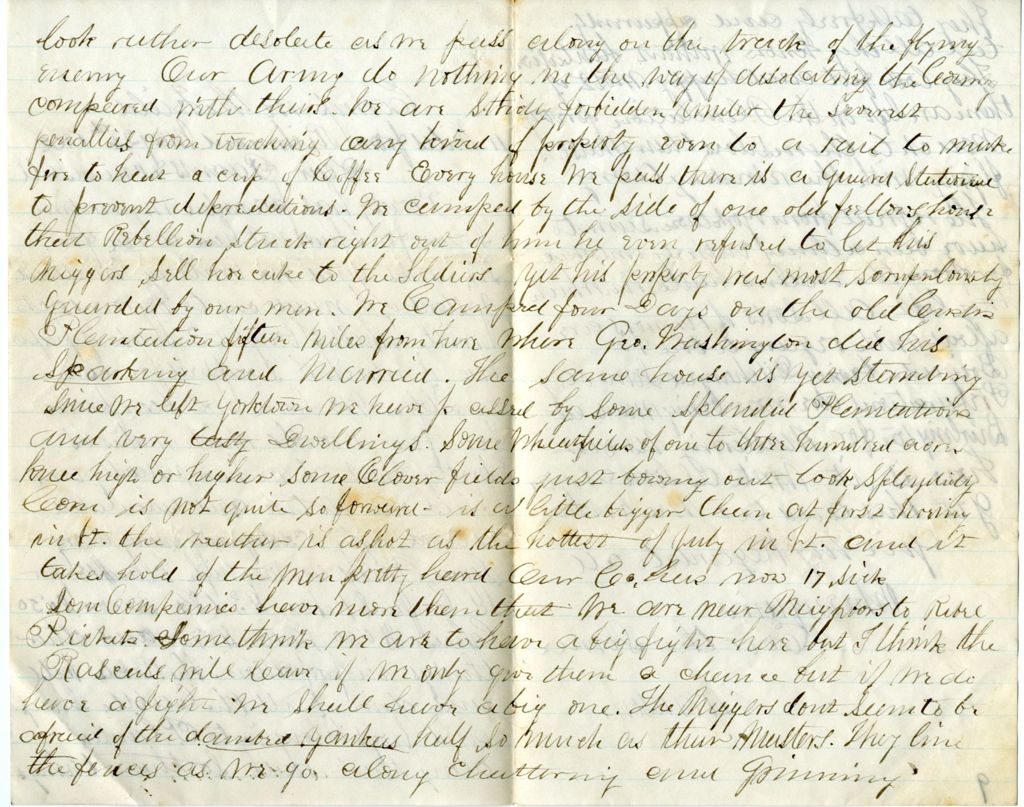 look rather desolate as we pass along on the track of the flying
enemy Our Army do nothing in the way of disolating the
compared with theirs. We are strictly forbidden under the severest
penalties from touching any kind of property even to a rail to make
fire to heat a cup of Coffee Every house we pass there is a Guard stationed
to prevent depredations. We camped by the side of one old fellows house
that Rebellion stuck right out of him he even refused to let his
Niggers sell hoecake to the Soldiers yet his property was most
Guarded by our men. We Camped four Days on the old
Plantation fifteen miles from here where Geo. Washington did his
Sparking and Married. The same house is yet standing
Since we left Yorktown we have passed by some splendid Plantations
and very tasty Dwellings. Some Wheatfields of one to three hundred acres
knee high or higher some Clover fields just bowing out look splendidly
Corn is not quite so forward - is a little bigger than at first hoeing
in Vt. the weather is as hot as the hottest of July in Vt. and it
takes hold of the men pretty hard Our Co. has now 17, sick
Som Companies have more them that We are near Neighbors to Rebel
Pickets Some think we are to have a big fight here but I think the
Rascals will leave if we only give them a chance but if we do
have a fight we shall have a big one. The Niggers dont seem to be
afraid of the damned Yankees half so much as their Masters. They line
the fences as we go along chattering and Grinning